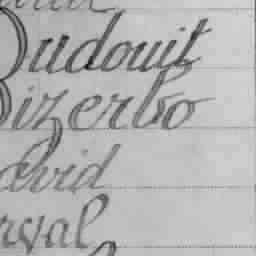 Budouit
Bizerbo
David
rval